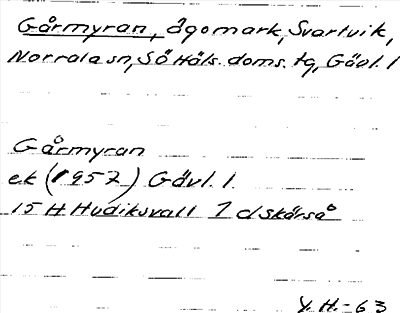 Gårmyran, ägomark, Svartvik,
Norrala sn, Sö Häls. doms. tg, Gävl. l
Gårmyran
ek (1957) Gävl. l.
15 H Hudiksvall 7 c/Skärså
Y. H. -63